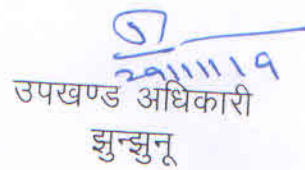 29/11/19
उपखण्ड अधिकारी
झुन्झुनू